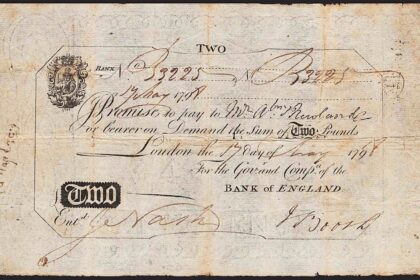 TWO
BANK No R3225 No R3225
17 May 1798
I Promise to pay to Mr. Abm. Newland
or bearer on Demand the Sum of Two Pounds
London the 17 day of May 1798
For the Govr. and Compa. of the
BANK of ENGLAND.
TWO
Entd. Nash
J Booth